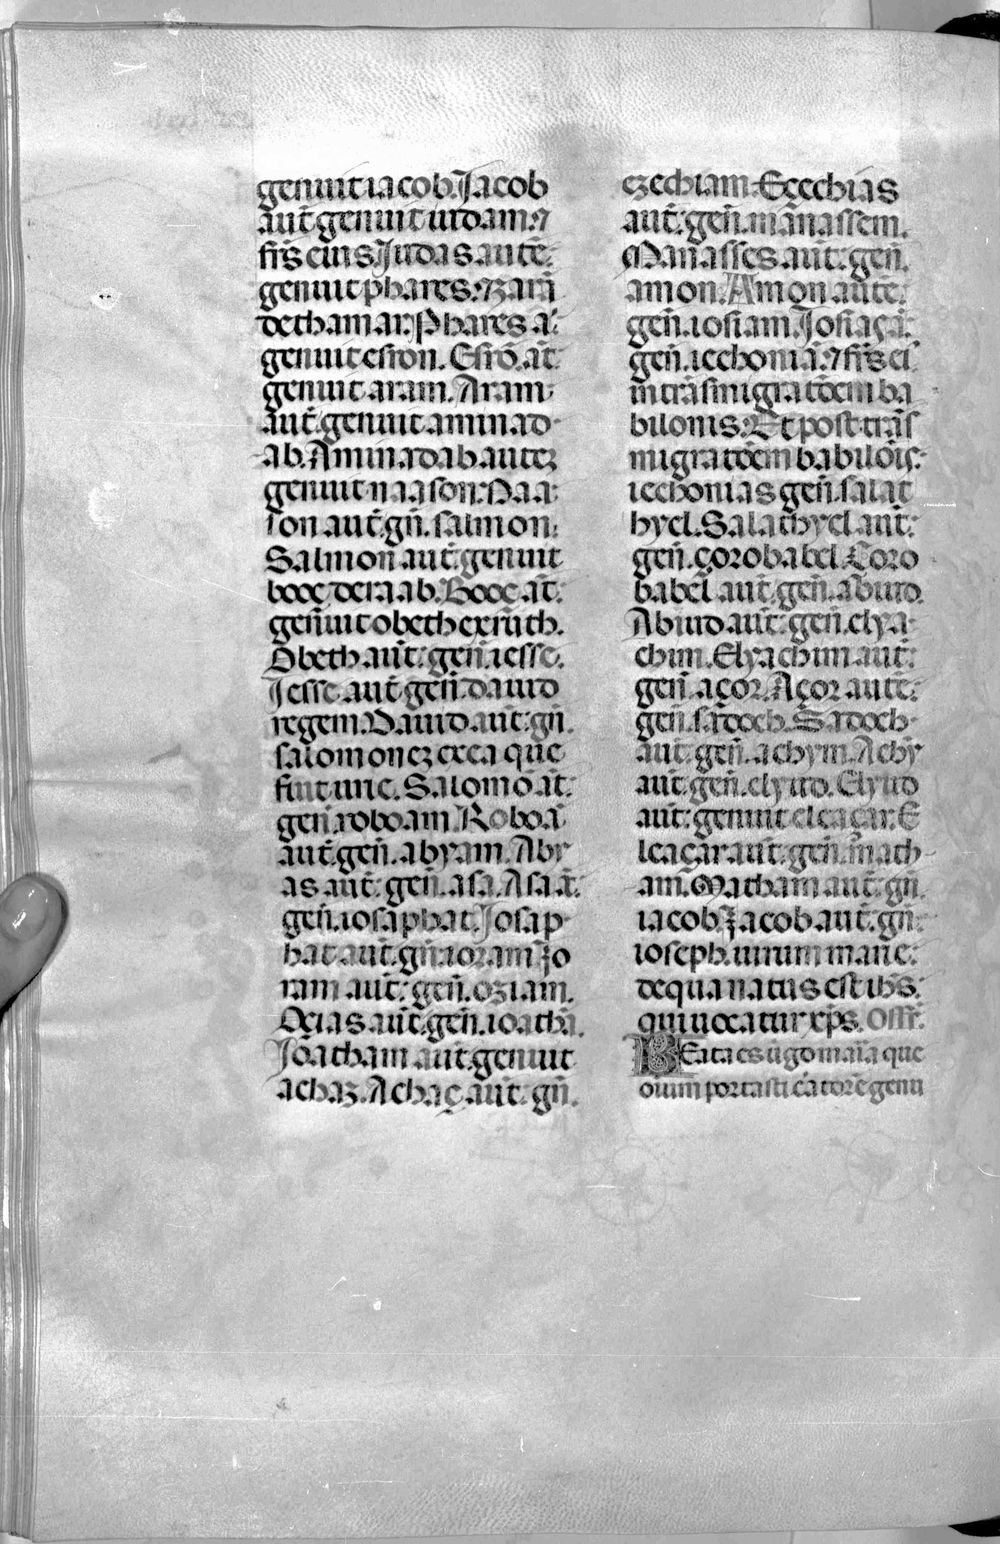 genuit iacob. Jacob
aut̄ genuit iudam. ⁊
fr̄s eius. Judas aute̅
genuit phares. ⁊ zarā
de thamar. Phares a̅
genuit esron. Esro̅ at̄
genuit aram. Aram
aut̄. genuit aminad
ab. Aminadab autez
genuit naason. Naa
son aut̄. gn̄. salmon.
Salmon aut̄. genuit
booç de raab. Booç at̄.
genuit obeth ex ruth.
Obeth aut̄. gen̄. iesse.
Jesse aut̄ gen̄. dauid
regem. Dauid aut̄. gn̄.
salomonez ex ea que
fuit urie. Salomō at̄.
gen̄. roboam. Roboā
aut̄. gen̄. abyam. Aby
as aut̄. gen̄. asa. Asa a̅.
gen̄. iosaphat. Josap
hat aut̄. gn̄. ioram. Jo
ram aut̄. gen̄. oziam.
Oçias aut̄. gen̄. ioathā.
Joatham aut̄. genuit
achaz. Achaç aut̄. gn̄.
ezechiam. Eçechias
aut̄. gen̄. manassem.
Manasses aut̄. gen̄.
amon. Amon aute̅.
gen̄. iosiam. Josias a̅.
gen̄. iechoniā. ⁊ fr̄s ei
in trāsmigratōem ba
bilonis. Et post trās
migratōem babilōis.
iechonias gen̄. salat
hyel. Salathyel aut̄.
gen̄. çorobabel. Çoro
babel aut̄. gen̄. abiud.
Abiud aut̄. gen̄. elya
chim. Elyachim aut̄.
gen̄. açor. Açor aute̅.
gen̄. sadoch. Sadoch
aut̄. gen̄. achym. Achȳ
aut̄. gen̄. elyud. Elyud
aut̄. genuit eleaçar. E
leaçar aut̄. gen̄. math
am. Matham aut̄. gn̄.
iacob. Jacob aut̄. gn̄.
ioseph. uirum marie.
de qua natus est ih̄s.
qui uocatur xp̄s. Off̄r.
Beata es ūgo maīa que
dnum portasti c̄atorē genu